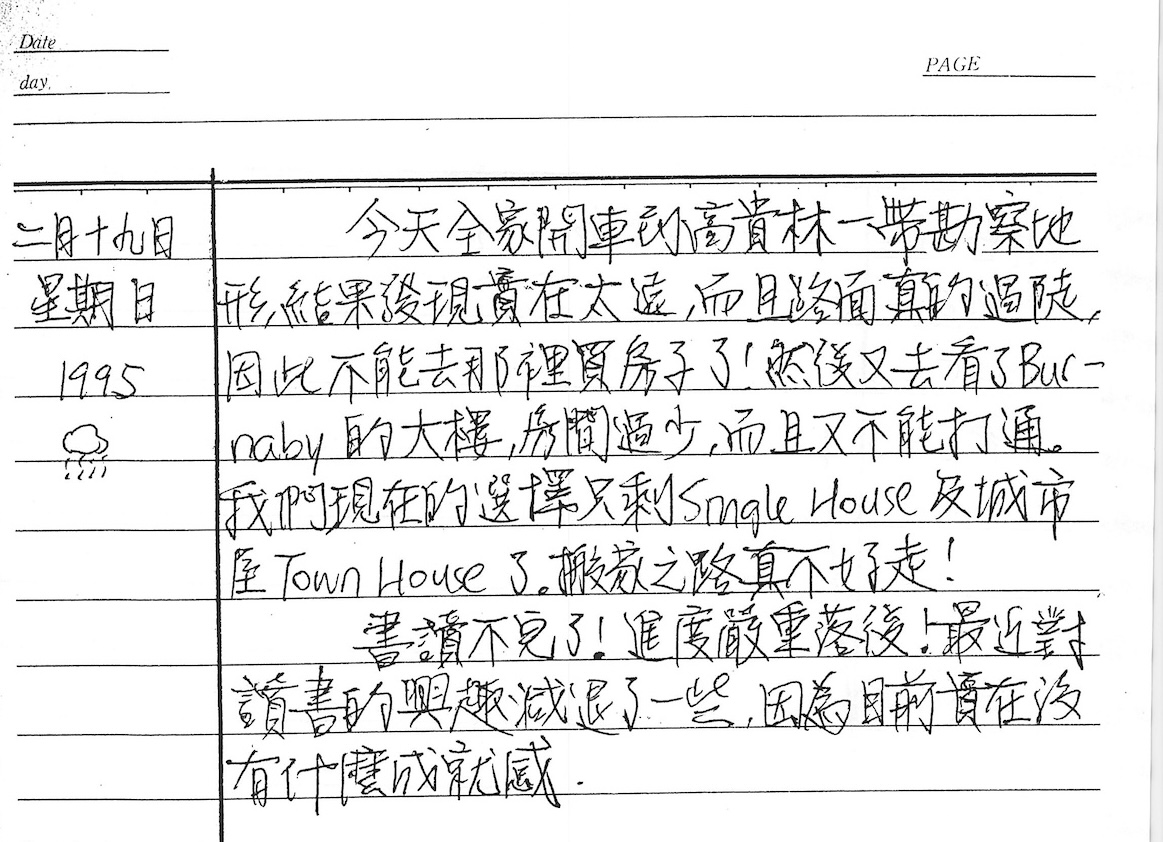 Date
day.
PAGE
二月十九日
星期日
1995
今天全家開車到高貴林一帶勘察地
形,結果發現實在太遠,而且路面真的過陡,
因此不能去那裡買房子了!然後又去看了Bur-
naby 的大樓,房間過少,而且又不能打通。
我們現在的選擇只剩Single House 及城市
屋Town House 了。搬家之路真不好走!
書讀不完了!進度嚴重落後!最近對
讀書的興趣減退了一些,因為目前實在沒
有什麼成就感.